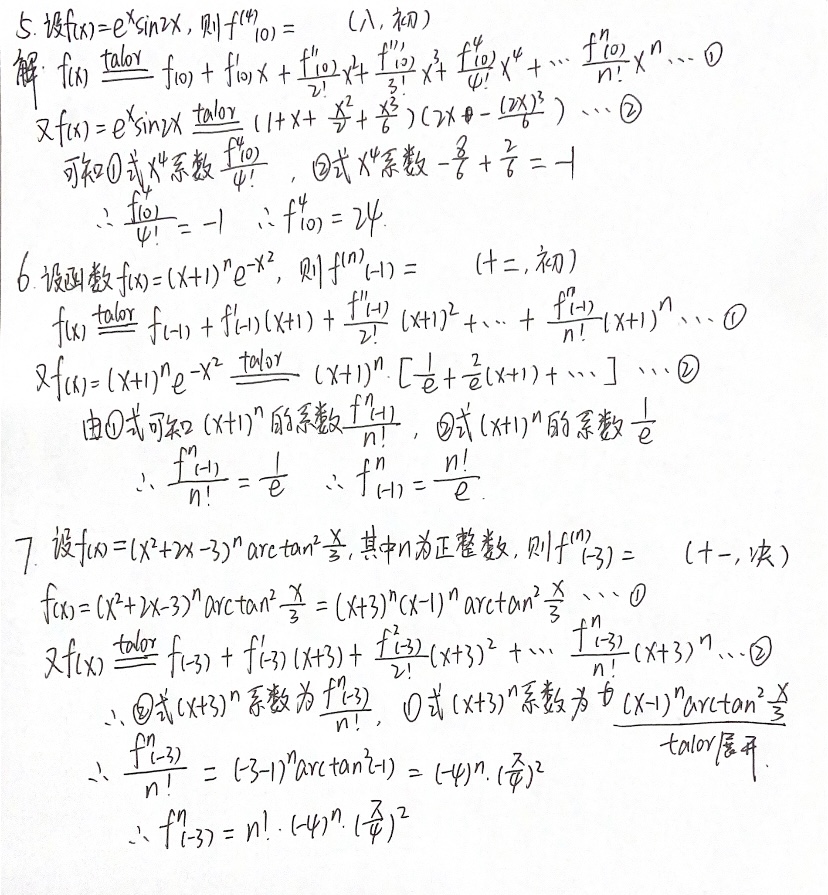 5. 设f(x)=e^x sin2x, 则f^(4)(0)= (八, 初)
解: f(x) talor f(0) + f'(0)x + f''(0)/2! x² + f'''(0)/3! x³ + f^4(0)/4! x⁴ + … f^n(0)/n! x^n … ①
又f(x)=e^x sin2x talor (1+x+x²/2+x³/6)(2x - (2x)³/6) … ②
可知①式x⁴系数 f^4(0)/4!, ②式x⁴系数 -8/6 + 2/6 = -1
∴ f^4(0)/4! = -1 ∴ f^4(0) = 24.
6. 设函数f(x)=(x+1)^n e^-x², 则f^(n)(-1)= (十二, 初)
f(x) talor f(-1) + f'(-1)(x+1) + f''(-1)/2! (x+1)² + … + f^n(-1)/n! (x+1)^n … ①
又f(x)=(x+1)^n e^-x² talor (x+1)^n·[1/e + 2/e(x+1) + …] … ②
由①式可知(x+1)^n的系数 f^n(-1)/n!, ②式(x+1)^n的系数 1/e
∴ f^n(-1)/n! = 1/e ∴ f^n(-1) = n!/e.
7. 设f(x)=(x²+2x-3)^n arctan² x/3, 其中n为正整数, 则f^(n)(-3)= (十一, 决)
f(x)=(x²+2x-3)^n arctan² x/3 = (x+3)^n(x-1)^n arctan² x/3 … ①
又f(x) talor f(-3) + f'(-3)(x+3) + f²(-3)/2! (x+3)² + … f^n(-3)/n! (x+3)^n … ②
∴ ②式(x+3)^n系数为 f^n(-3)/n!, ①式(x+3)^n系数为 (x-1)^n arctan² x/3
talor展开.
∴ f^n(-3)/n! = (-3-1)^n arctan²(-1) = (-4)^n·(π/4)²
∴ f^n(-3) = n!·(-4)^n·(π/4)²